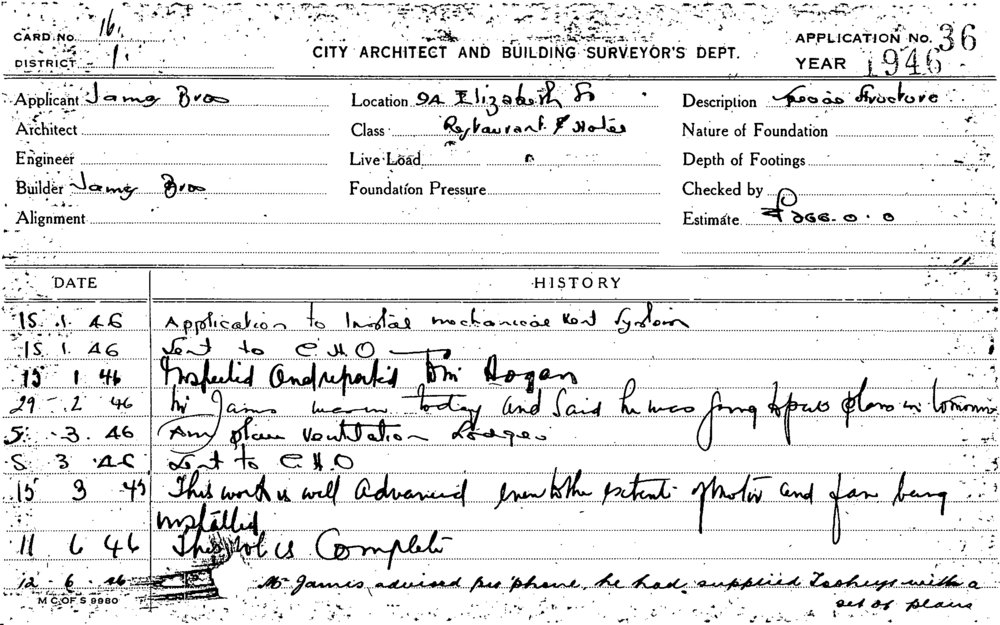 CARD NO. 16.
DISTRICT 1.
CITY ARCHITECT AND BUILDING SURVEYOR'S DEPT.
APPLICATION NO. 36
YEAR 1946
Applicant James Bros Location 92 Elizabeth St Description Struct​ure
Architect Class Restaurant & Hotel Nature of Foundation
Engineer Live Load Depth of Footings
Builder James Bros Foundation Pressure Checked by
Alignment Estimate £266.0.0
DATE HISTORY
15.1.46 Application to Install mechanical Vent System
15.1.46 Sent to C.H.O
15 1 46 Inspected and reported Hogan
29.2 46 Mr James today and said he was going to plans in tomorrow
5.3.46 Am plan ventilation Lodged
5 3 46 Sent to C.H.O
15 3 45 This work is well advanced even to the extent of motor and fan being
installed
11 6 46 This is Complete
12.6.46 Mr James advised per 'phone, he had supplied Tooheys with a
set of plans
M C OF S 9980